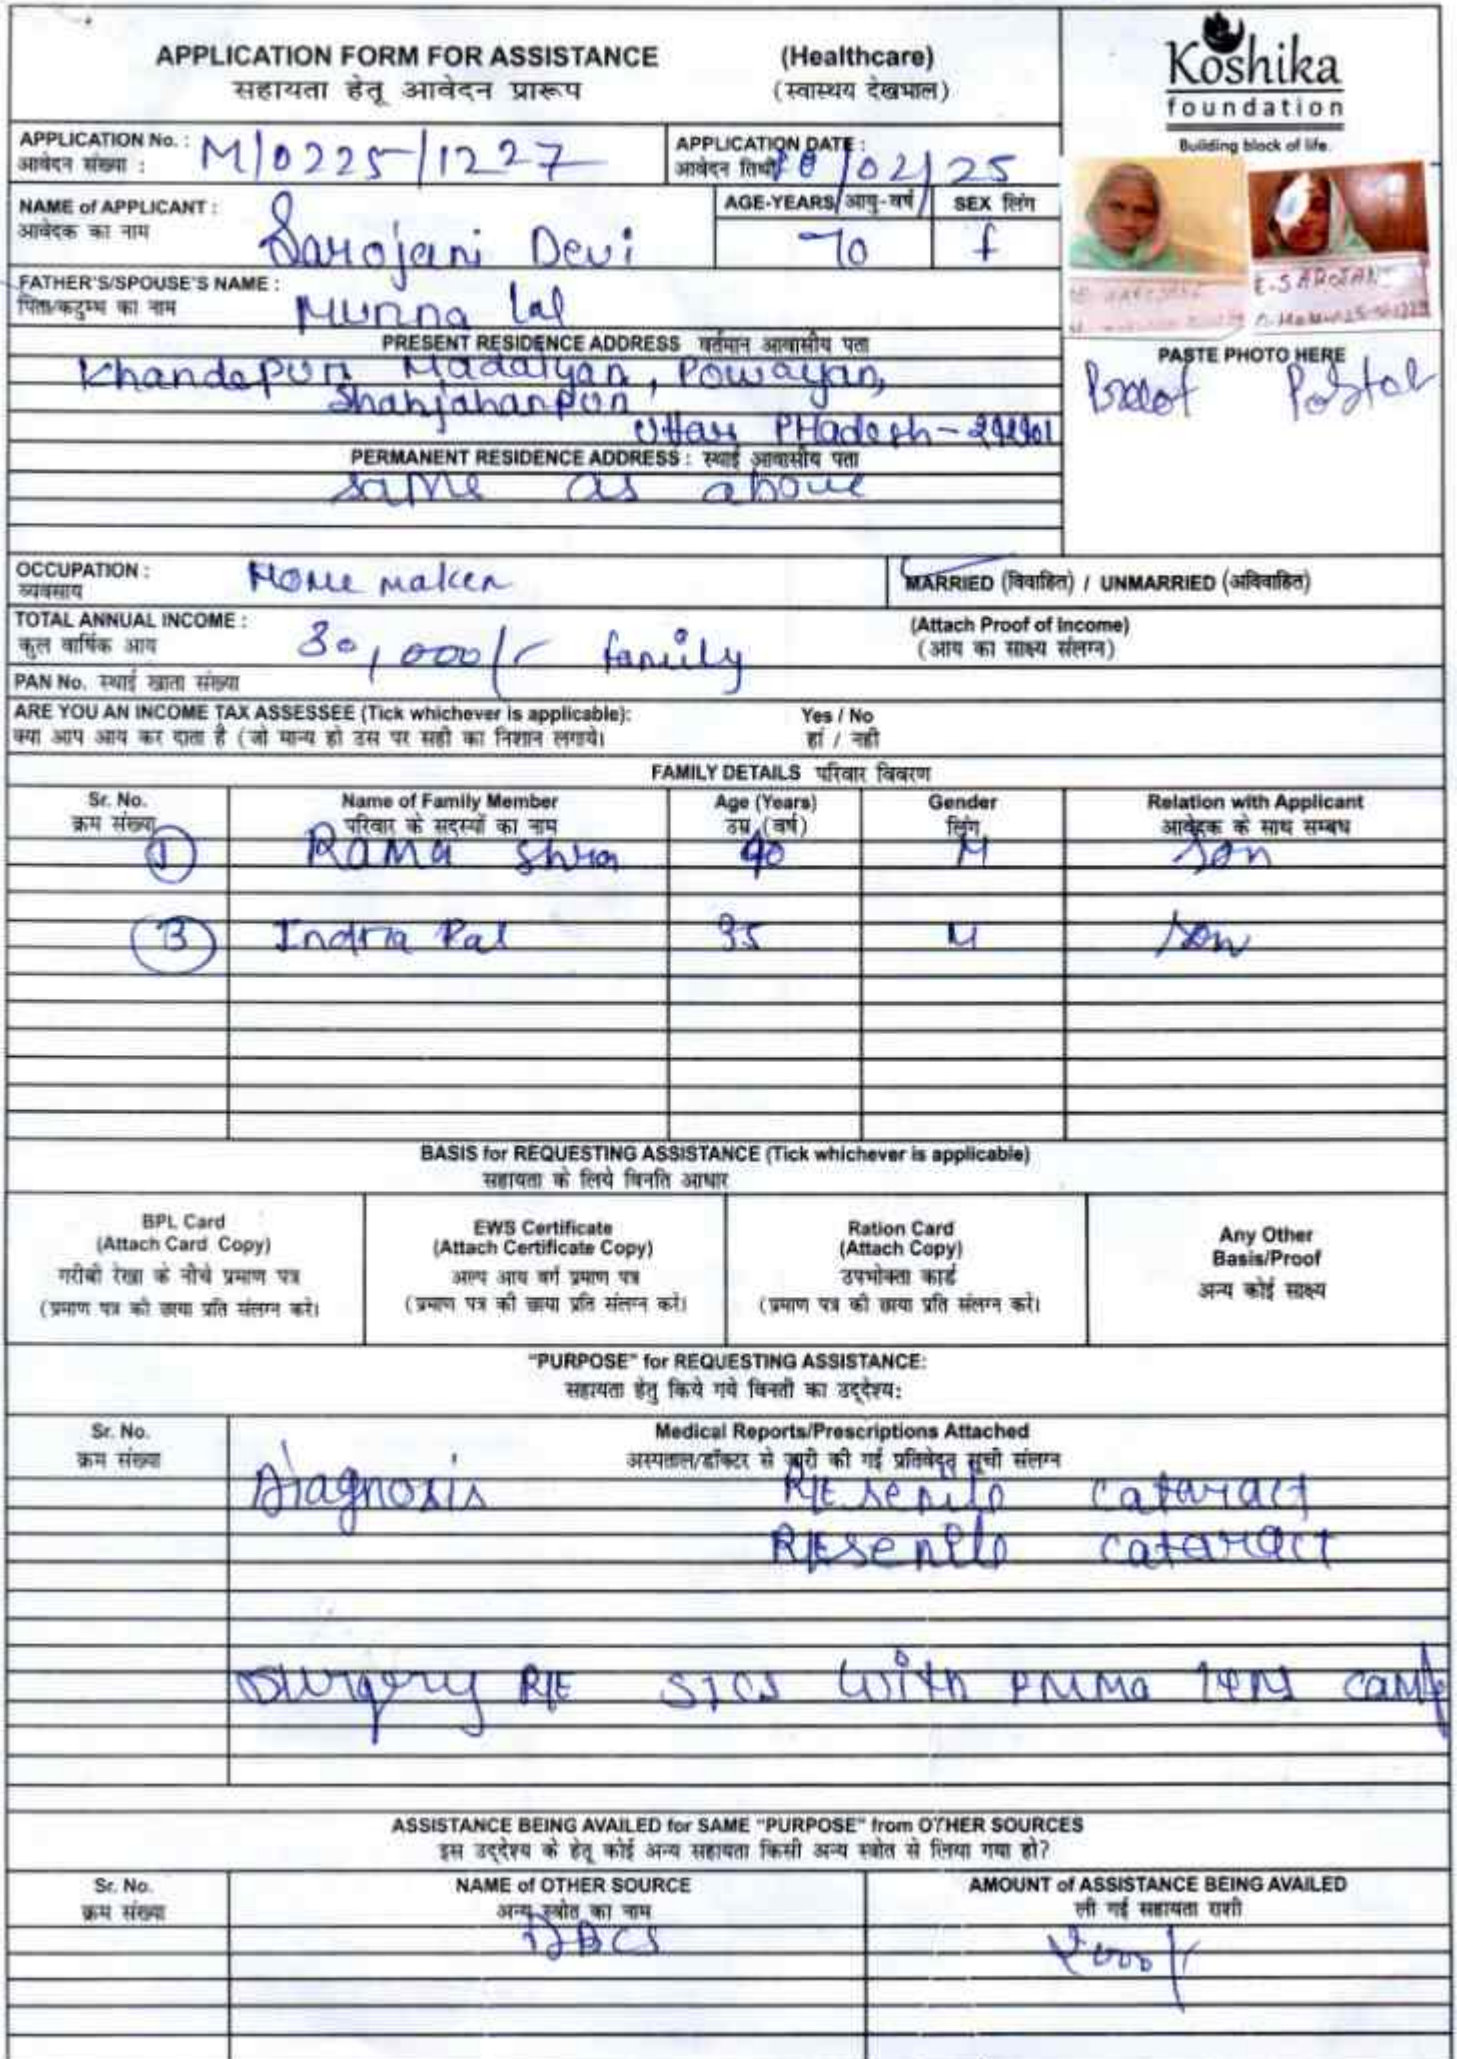 APPLICATION FORM FOR ASSISTANCE (Healthcare)
सहायता हेतू आवेदन प्रारूप (स्वास्थय देखभाल)
Koshika
foundation
Building block of life.
APPLICATION No. : M/0225/1227
आवेदन संख्या :
APPLICATION DATE :
आवेदन तिथी 10/02/25
NAME of APPLICANT :
आवेदक का नाम Sarojani Devi
AGE-YEARS/आयु-वर्ष 70
SEX लिंग f
E-SAROJANI
FATHER'S/SPOUSE'S NAME :
पिता/कटुम्ब का नाम Munna Lal
PRESENT RESIDENCE ADDRESS वर्तमान आवासीय पता
Khandepur Madaiyan, Powayan,
Shahjahanpur
Uttar Pradesh-
PASTE PHOTO HERE
PERMANENT RESIDENCE ADDRESS : स्थाई आवासीय पता
same as above
OCCUPATION : Home maker
व्यवसाय
MARRIED (विवाहित) / UNMARRIED (अविवाहित)
TOTAL ANNUAL INCOME :
कुल वार्षिक आय 30,000/- family
(Attach Proof of Income)
(आय का साक्ष्य संलग्न)
PAN No. स्थाई खाता संख्या
ARE YOU AN INCOME TAX ASSESSEE (Tick whichever is applicable): Yes / No
क्या आप आय कर दाता है (जो मान्य हो उस पर सही का निशान लगाये। हां / नही
FAMILY DETAILS परिवार विवरण
Sr. No. Name of Family Member Age (Years) Gender Relation with Applicant
क्रम संख्या परिवार के सदस्यों का नाम उम्र (वर्ष) लिंग आवेदक के साथ सम्बध
1 Rama 40 M Son
Indra Pal 35 M Son
BASIS for REQUESTING ASSISTANCE (Tick whichever is applicable)
सहायता के लिये विनति आधार
BPL Card
(Attach Card Copy)
गरीबी रेखा के नीचे प्रमाण पत्र
(प्रमाण पत्र की छाया प्रति संलग्न करे।
EWS Certificate
(Attach Certificate Copy)
अल्प आय वर्ग प्रमाण पत्र
(प्रमाण पत्र की छाया प्रति संलग्न करे।
Ration Card
(Attach Copy)
उपभोक्ता कार्ड
(प्रमाण पत्र की छाया प्रति संलग्न करे।
Any Other
Basis/Proof
अन्य कोई साक्ष्य
"PURPOSE" for REQUESTING ASSISTANCE:
सहायता हेतु किये गये विनती का उद्देश्य:
Sr. No. Medical Reports/Prescriptions Attached
क्रम संख्या अस्पताल/डॉक्टर से जारी की गई प्रतिवेदन सूची संलग्न
Diagnosis R/E senile cataract
R/E senile cataract
Surgery R/E SICS with PMMA lens camp
ASSISTANCE BEING AVAILED for SAME "PURPOSE" from OTHER SOURCES
इस उद्देश्य के हेतू कोई अन्य सहायता किसी अन्य स्त्रोत से लिया गया हो?
Sr. No. NAME of OTHER SOURCE AMOUNT of ASSISTANCE BEING AVAILED
क्रम संख्या अन्य स्त्रोत का नाम ली गई सहायता राशी
DBCS 2000/-